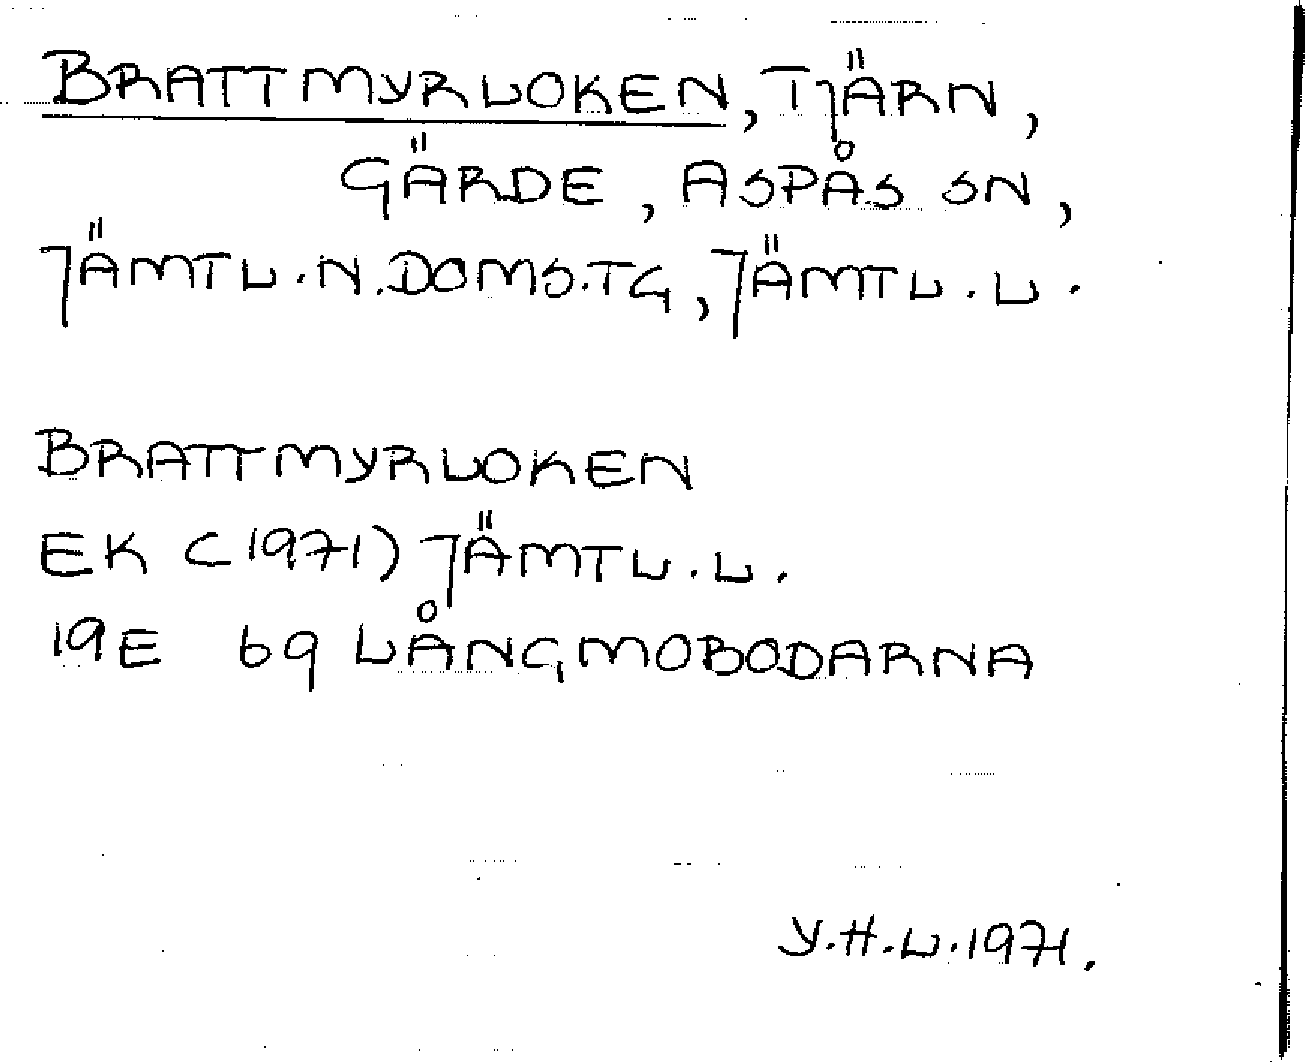 BRATTMYRLOKEN, TJÄRN,
GÄRDE, ASPÅS SN,
JÄMTL.N.DOMS.TG, JÄMTL.L.
BRATTMYRLOKEN
EK (1971) JÄMTL.L.
19E 69 LÅNGMOBODARNA
Y.H.L.1971.